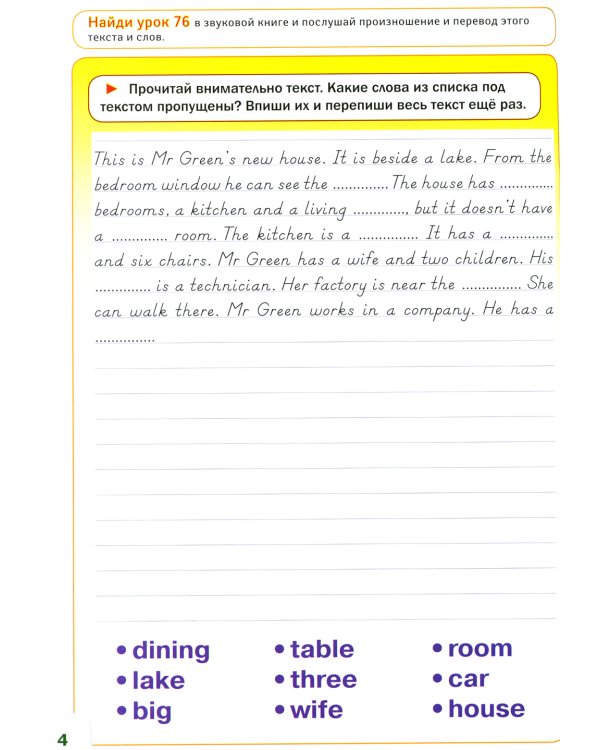 Найди урок 76 в звуковой книге и послушай произношение и перевод этого
текста и слов.
► Прочитай внимательно текст. Какие слова из списка под
текстом пропущены? Впиши их и перепиши весь текст ещё раз.
This is Mr Green's new house. It is beside a lake. From the
bedroom window he can see the .............. The house has .............
bedrooms, a kitchen and a living ............., but it doesn't have
a .............. room. The kitchen is a ............... It has a .............
and six chairs. Mr Green has a wife and two children. His
.............. is a technician. Her factory is near the ............... She
can walk there. Mr Green works in a company. He has a
...............
• dining • table • room
• lake • three • car
• big • wife • house
4